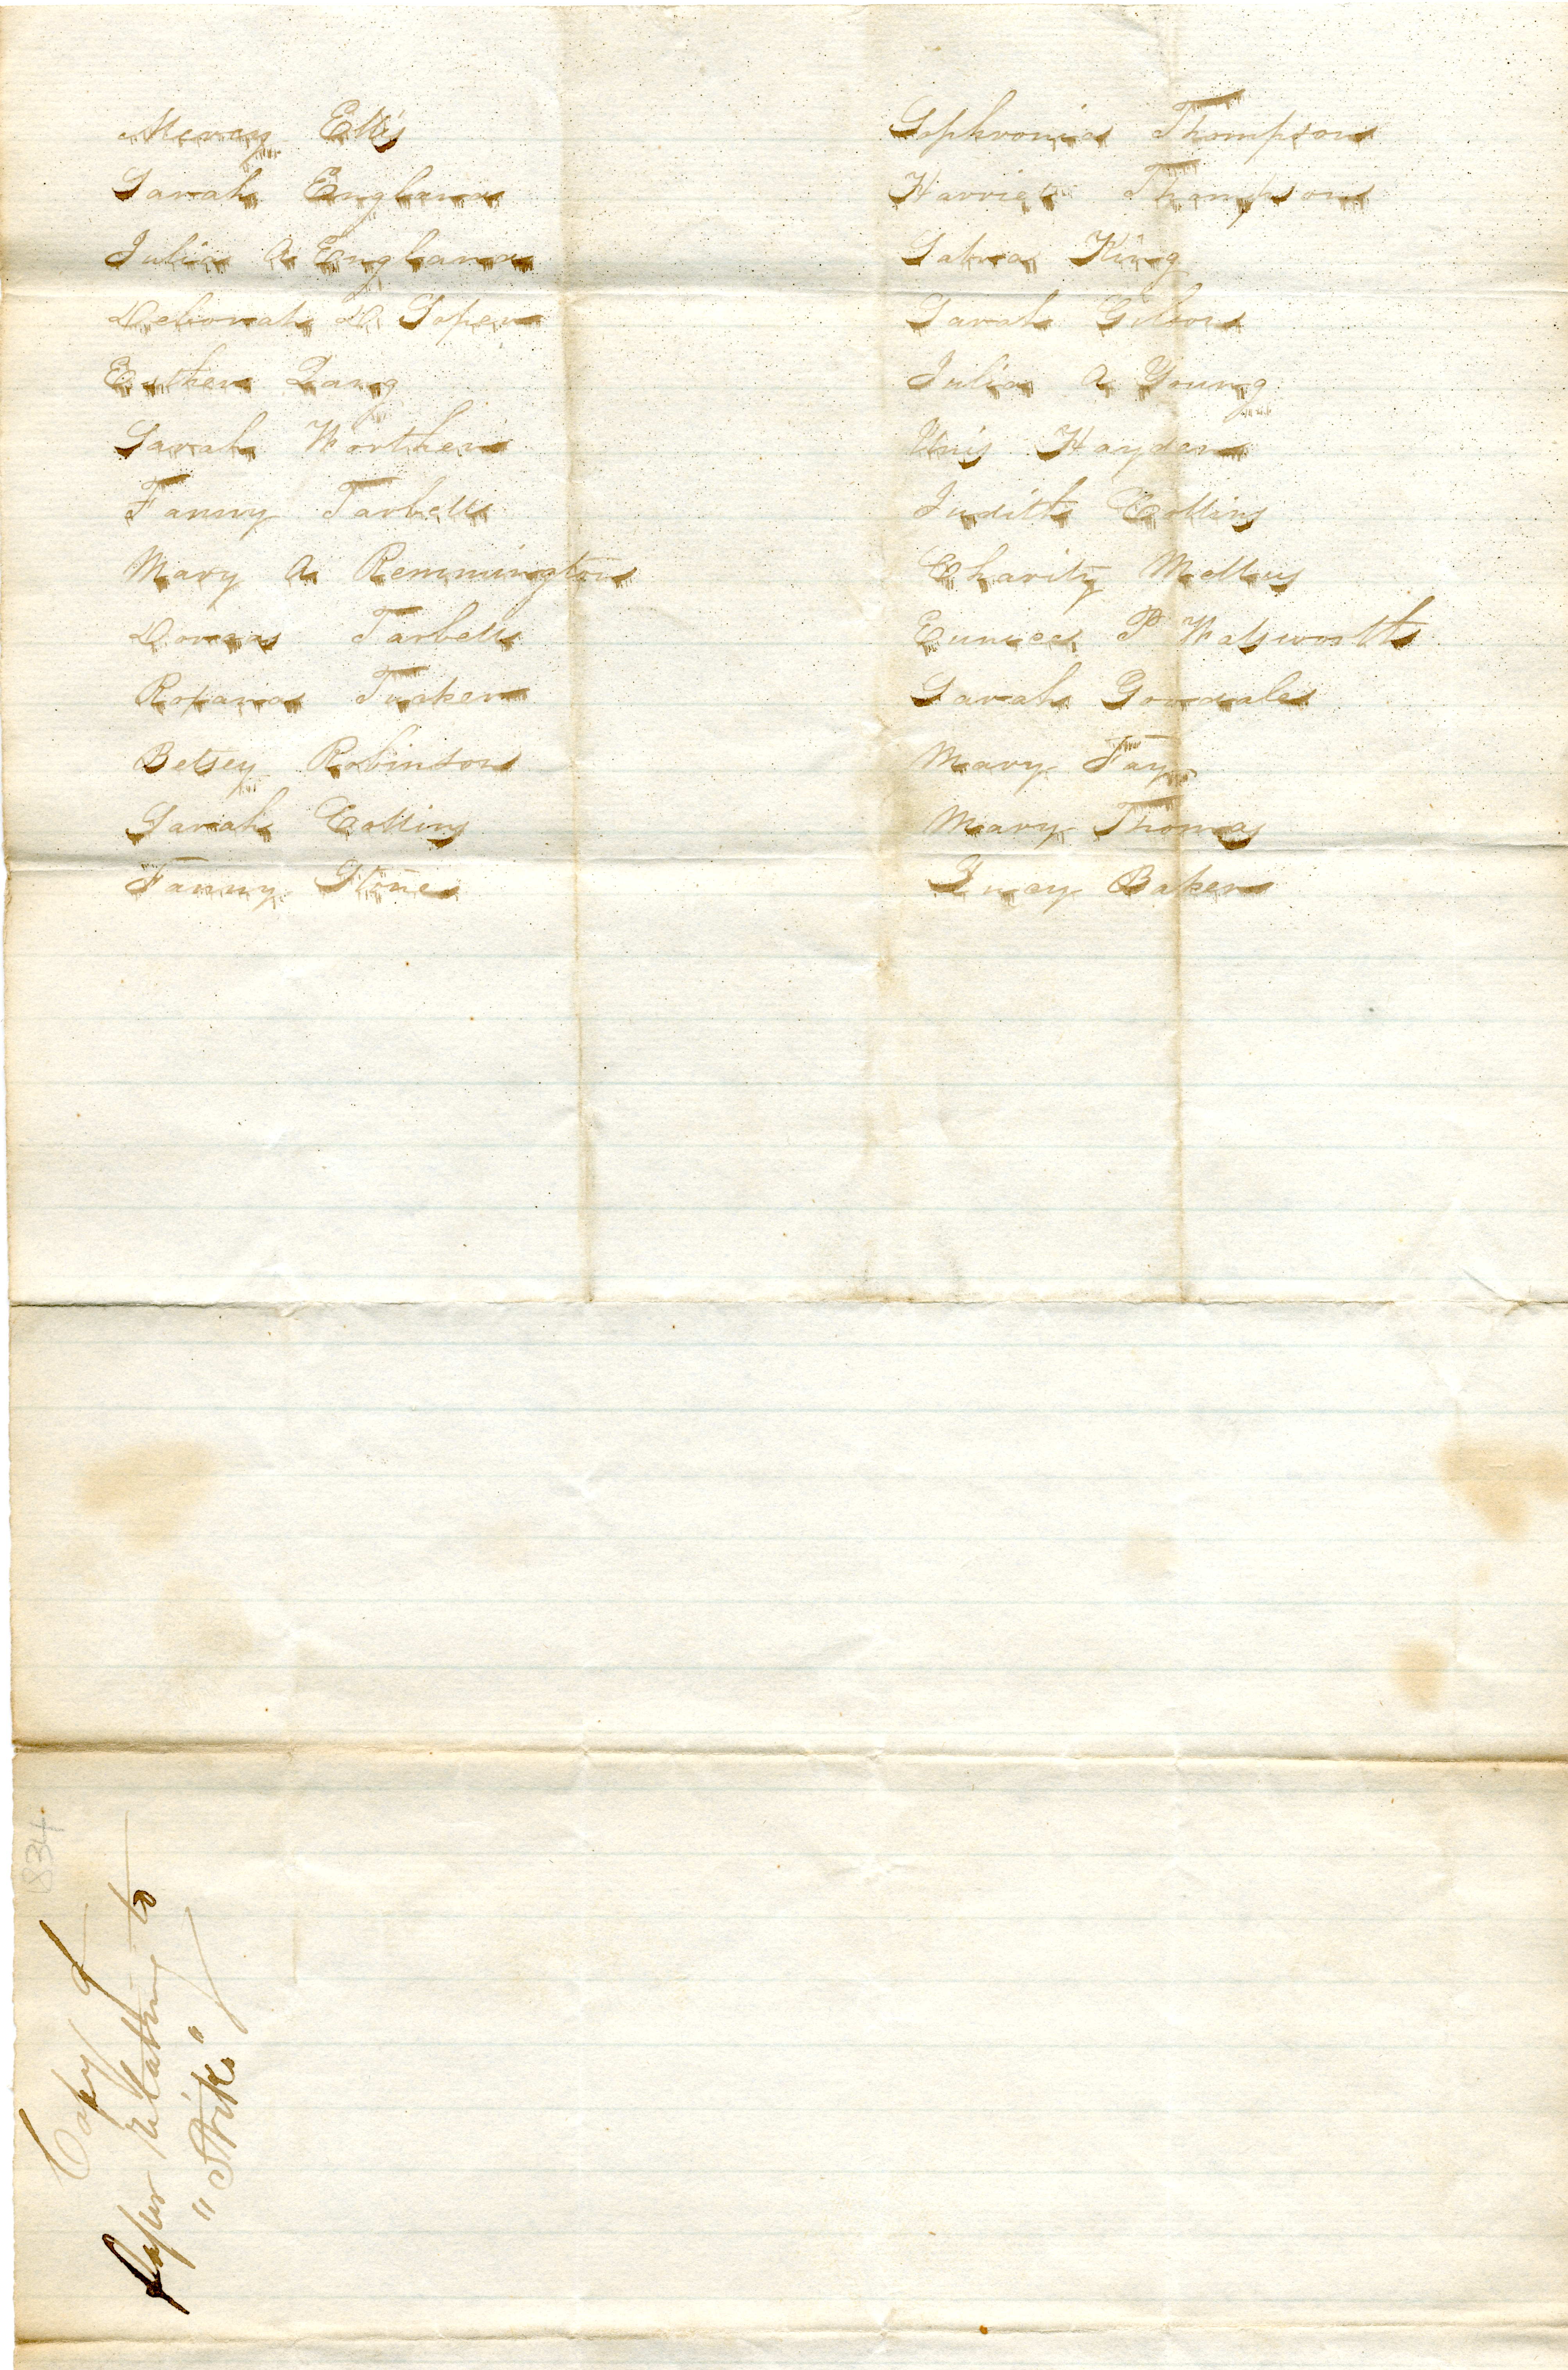 Mercy Ellis
Sarah England
Julia A England
Deborah D Soper
Esther Lang
Sarah Worthen
Fanny Tarbell
Mary A Remmington
Dorcas Tarbell
Roxana Tucker
Betsey Robinson
Sarah Collins
Fanny Stone
Sophronia Thompson
Harriet Thompson
Sabra King
Sarah Gibson
Julia A Young
Unis Hayden
Judith Collins
Charity Mellus
Eunice P Walsworth
Sarah Goodale
Mary Fay
Mary Thomas
Lucy Baker
1834
Copy of
paper relating to
"Strike"